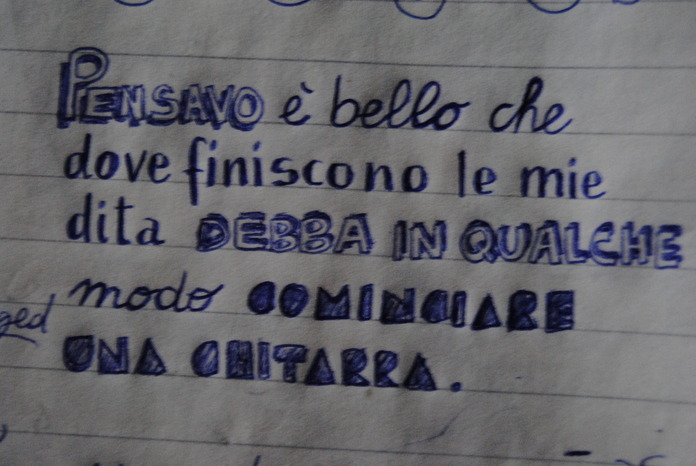 PENSAVO è bello che
dove finiscono le mie
dita DEBBA IN QUALCHE
modo COMINCIARE
ged
UNA CHITARRA.